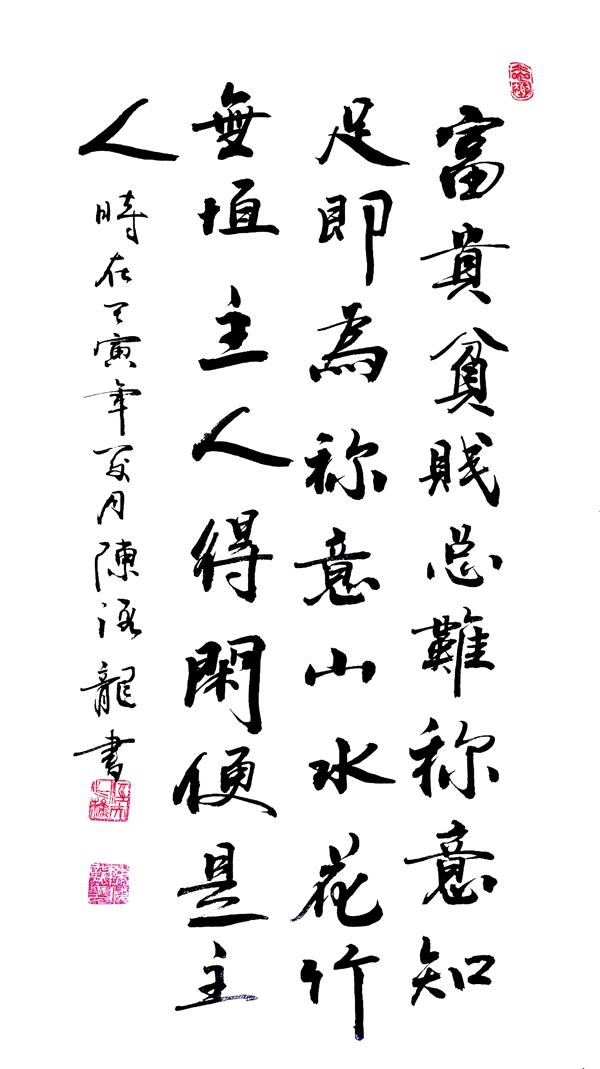 富貴貧賤总難称意知
足即為称意山水花竹
無恒主人得閑便是主
人
時在壬寅年夏月陳洛龍書